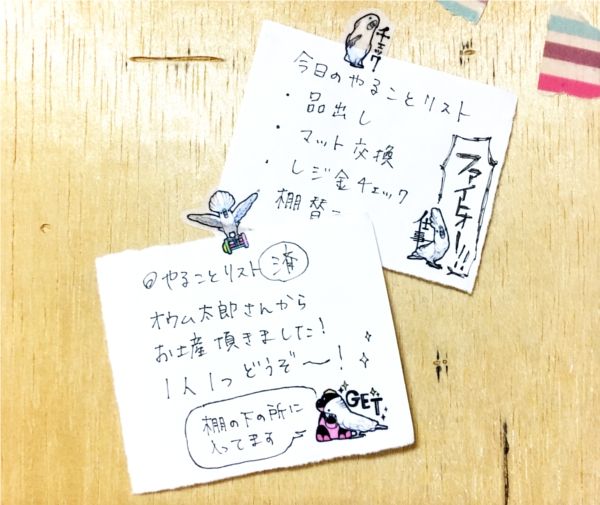 チェック
今日のやることリスト
・品出し
・マット交換
・レジ金チェック
棚替ー
ファイトォー!!!
仕事
@やることリスト 済
オウム太郎さんから
お土産頂きました!
1人1つ どうぞ〜!
GET
棚の下の所に
入ってます